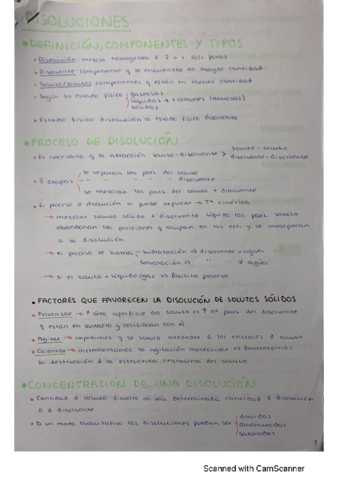 DISOLUCIONES
DEFINICIÓN, COMPONENTES Y TIPOS
Disolución → mezcla homogénea d 2 o + sust. puras
Disolvente: componente q se encuentra en mayor cantidad
Soluto/solutos: componentes q están en menor cantidad
Según su estado físico gaseosas
líquidas → + comunes (acuosas)
sólidas
Estado físico disolución = estado físico disolvente
PROCESO DE DISOLUCIÓN
Es necesario q la atracción soluto-disolvente > soluto-soluto
disolvente-disolvente
3 etapas se separan las part. del soluto
" " " " disolvente
se mezclan las part. del soluto + disolvente
El proceso d disolución se puede explicar → Tª cinética
→ mezclar soluto sólido + disolvente líquido las part. soluto
abandonan las posiciones q ocupan en las est. y se incorporan
a la disolución
→ el proceso se llama hidratación → disolvente = agua
solvatación → " ≠ agua
→ si es soluto = líquido/gas → facilita proceso
FACTORES QUE FAVORECEN LA DISOLUCIÓN DE SOLUTOS SÓLIDOS
Pulverizar → superficie del soluto → nº part. del disolvente
q están en contacto y colisionan con él
Agitar → impedimos q se sature alrededor d los cristales d soluto
Calentar → incrementamos la agitación molecular → favorecemos
la destrucción d la estructura cristalina del soluto
CONCENTRACIÓN DE UNA DISOLUCIÓN
Cantidad d soluto disuelto en una determinada cantidad d disolución
o d disolvente
D un modo cualitativo las disoluciones pueden ser diluidas
concentradas
saturadas
1
Scanned with CamScanner